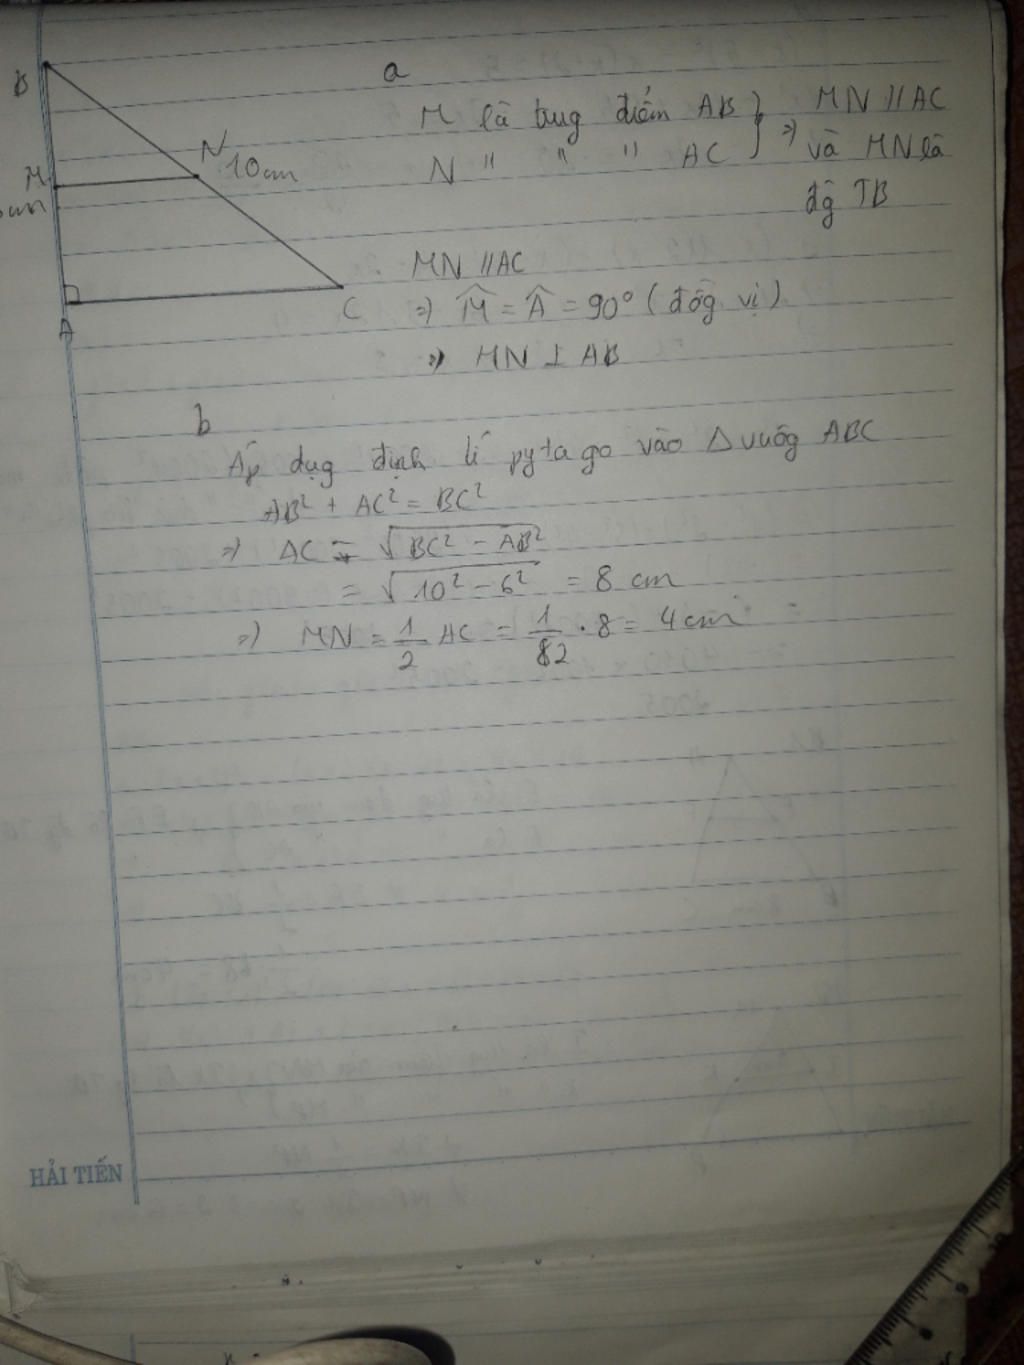 B
a
M là trug điểm AB } => MN // AC
N " " " AC và MN là
đg TB
N
10cm
M
MN // AC
C
=> M̂ = Â = 90° ( đồg vị )
A
=> MN ⊥ AB
b
Áp dụg định lí pytago vào Δ vuôg ABC
AB² + AC² = BC²
=> AC = √BC² - AB²
= √10² - 6² = 8 cm
=> MN = 1/2 AC = 1/2 . 8 = 4 cm
HẢI TIẾN